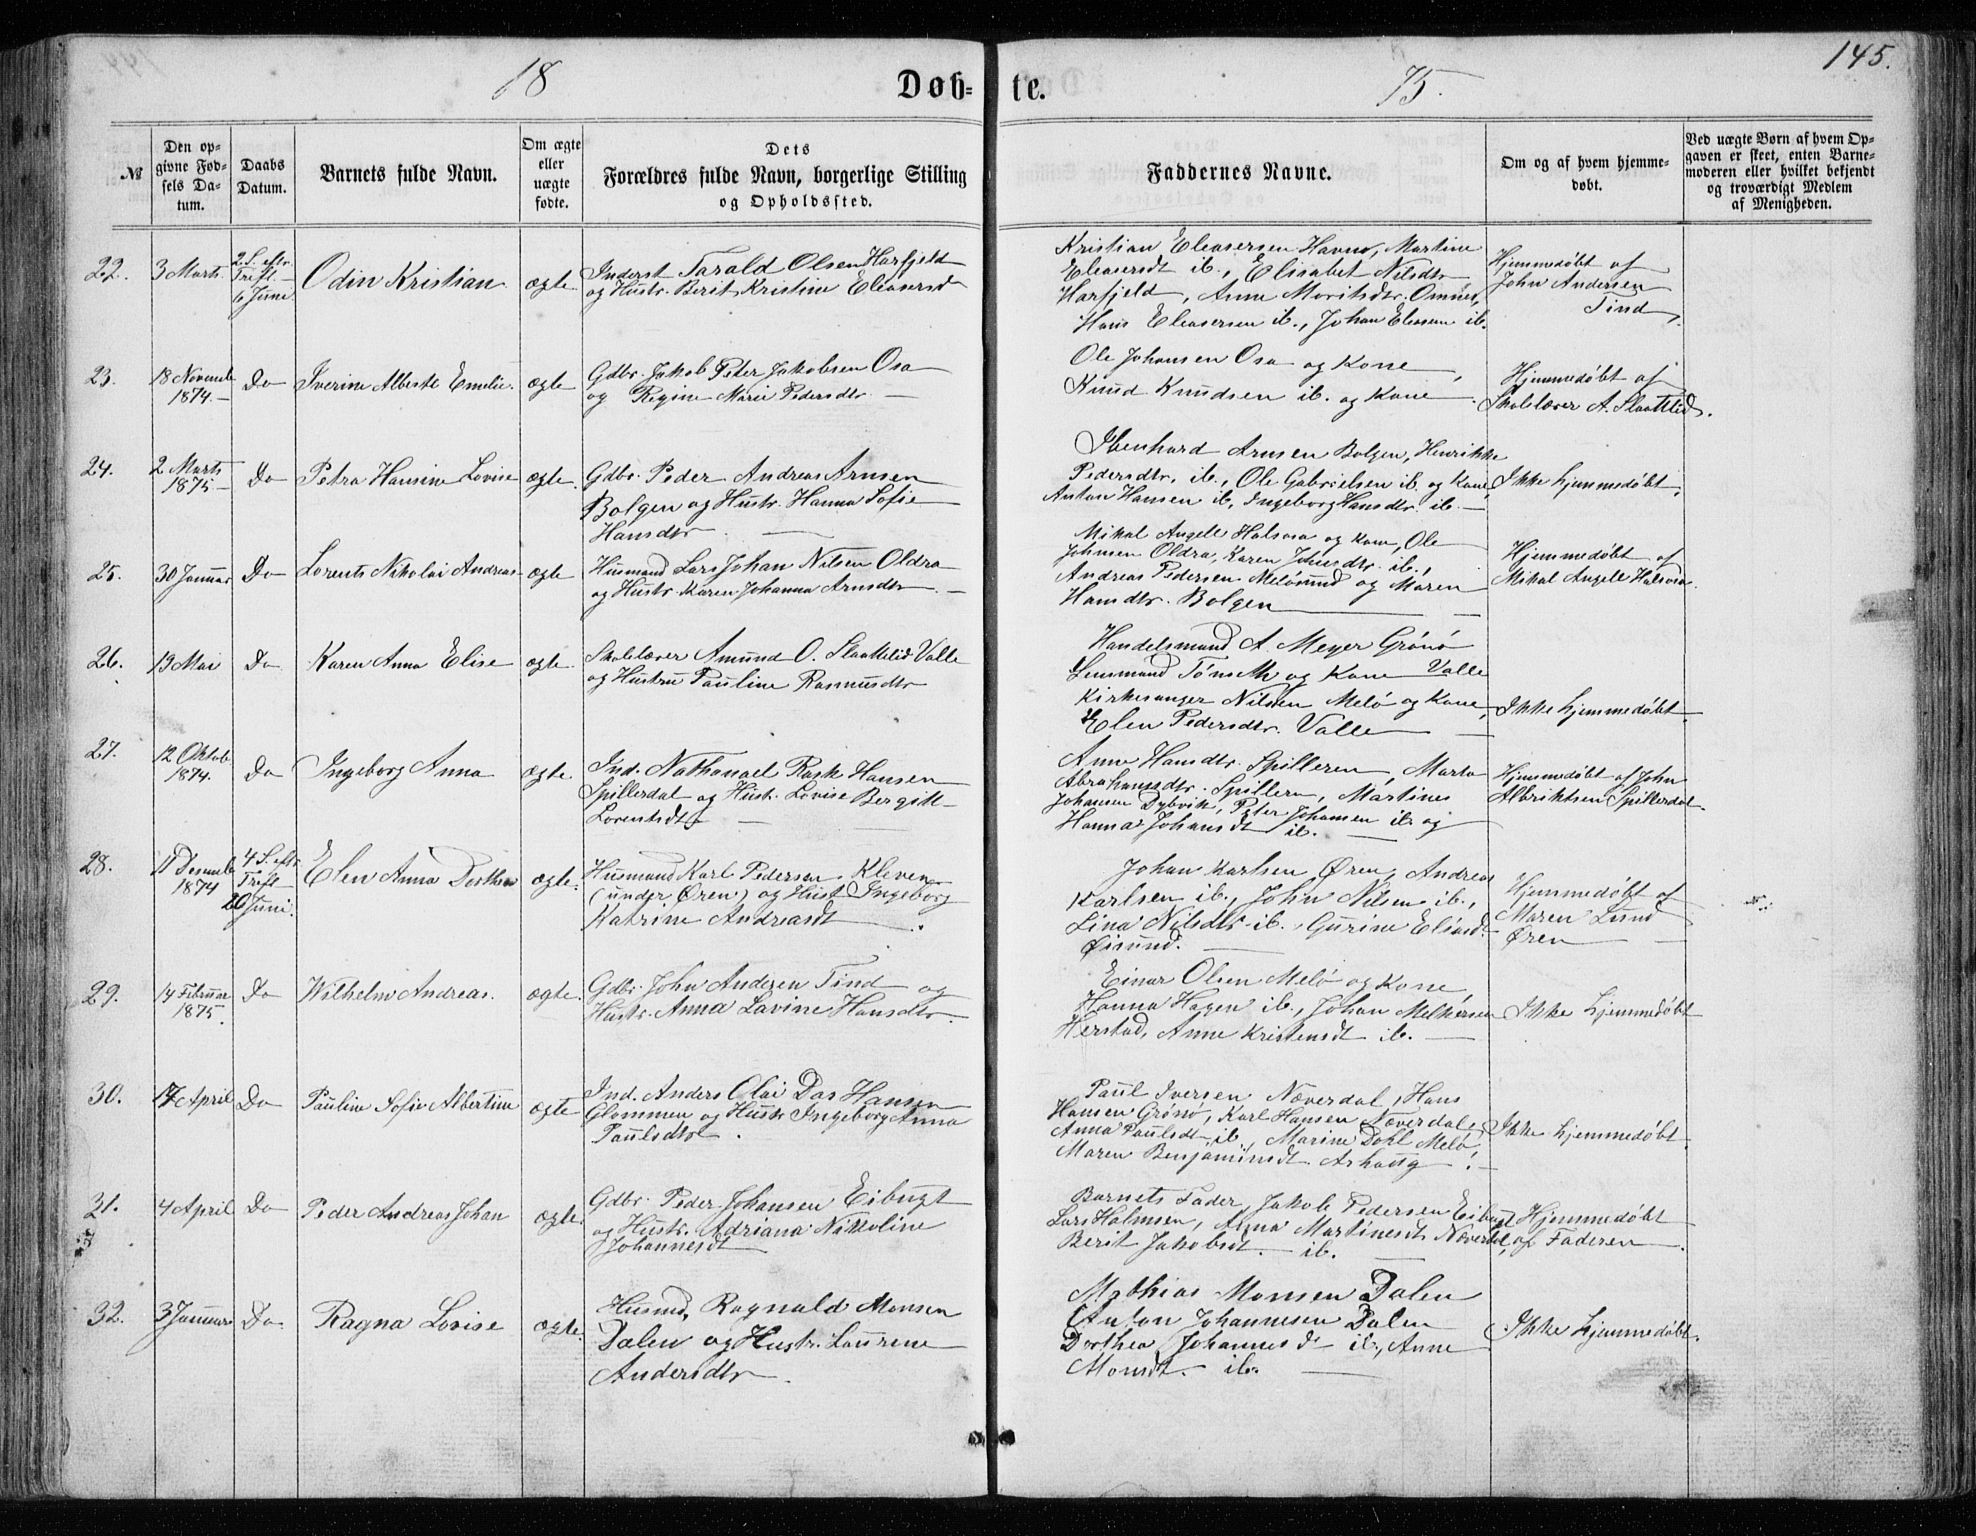 145.
18 Døb-te. 75.
№
Den op-
givne Fød-
sels Da-
tum.
Daabs
Datum.
Barnets fulde Navn.
Om ægte
eller
uægte
fødte.
Dets
Forældres fulde Navn, borgerlige Stilling
og Opholdssted.
Faddernes Navne.
Om og af hvem hjemme-
døbt.
Ved uægte Børn af hvem Op-
gaven er skeet, enten Barne-
moderen eller hvilket bekjendt
og troværdigt Medlem
af Menigheden.
22.
3 Marts
2 S. eftr.
Trift.
6 Juni
Odin Kristian
ægte
Inderst Tarald Olsen Harfjeld
og Hustr. Berit Kristine Eleasersd
Kristian Eleasersen Havnø, Martine
Eleasersdt ib., Elisabet Nilsdtr
Harfjeld, Anne Moritsdtr. Omnes,
Hans Eleasersen ib., Johan Eleasen ib.
Hjemmedøbt af
John Andersen
Tind
23.
18 Novemb
1874.
Do
Iverine Albertte Emelie.
ægte
Gdbr. Jakob Peter Jakobsen Osa
og Regine Marie Pedersdtr.
Ole Johansen Osa og Kone,
Knud Knudsen ib. og Kone
Hjemmedøbt af
Skolelærer A. Slaattlid.
24.
2 Marts
1875
Do
Petra Hansine Lovise
ægte.
Gdbr. Peder Andreas Arnsen
Bolgen og Hustr. Hanna Sofie
Hansdtr
Ibenhard Arnsen Bolgen, Henrikke
Pedersdtr. ib., Ole Gabrielsen ib. og Kone,
Anton Hansen ib, Ingeborg Hansdtr. ib.
Ikke hjemmedøbt.
25.
30 Januar
Do
Lorents Nikolai Andreas
ægte
Husmand Lars Johan Nilsen Oldra
og Hustr. Karen Johanna Arnsdtr.
Mikal Angell Halsosa og Kone, Ole
Johnsen Oldra, Karen Johnsdtr. ib.,
Andreas Pedersen Meløsund og Maren
Hansdtr. Bolgen
Hjemmedøbt af
Mikal Angell Halsosa.
26.
13 Mai
Do
Karen Anna Elise
ægte
Skolelærer Amund O. Slaattlid Valle
og Hustru Pauline Rasmusdtr
Handelsmand A. Meyer Grønø
Lensmand Tønseth og Kone Valle
Kirkesanger Nilsen Melø og Kone,
Elen Pedersdtr. Valle
Ikke hjemmedøbt.
27.
12 Oktob
1874.
Do
Ingeborg Anna
ægte.
Ind. Nathanael Rask Hansen
Spillerdal og Hustr. Lovise Bergitt
Lorentsdtr
Anne Hansdtr. Spilleren, Marta
Abrahamsdtr. Spilleren, Martines
Johansen Dybvik, Peter Johansen ib. og
Hanna Johansdt ib.
Hjemmedøbt af John
Albriktsen Spillerdal.
28.
11 Desemb
1874
4 S. eftr.
Trift
20 Juni.
Elen Anna Dorthea
ægte.
Husmand Karl Pedersen Kleven
(under Øren) og Hust Ingeborg
Katrine Andreasdt.
Johan Karlsen Øren, Andreas
Karlsen ib., John Nilsen ib.,
Lina Nilsdtr ib., Gurine Eliasdt
Øisund.
Hjemmedøbt af
Maren Lund
Øren
29.
14 Februar
1875.
Do
Wilhelm Andreas.
ægte.
Gdbr. John Andersen Tind og
Hustr. Anna Lavine Hansdtr.
Einar Olsen Melø og Kone,
Hanna Hagen ib., Johan Melkersen
Herstad, Anne Kristensdt ib.
Ikke hjemmedøbt
30.
17 April
Do
Pauline Sofie Albertine
ægte
Ind. Anders Olai Das Hansen
Glommen og Hustr Ingeborg Anna
Paulsdtr.
Paul Iversen Næverdal, Hans
Hansen Grønø, Karl Hansen Næverdal,
Anna Paulsdt. ib., Marine Dahl Melø,
Maren Benjaminsdt. Ashaug.
Ikke hjemmedøbt.
31.
4 April
Do
Peder Andreas Johan
ægte.
Gdbr. Peder Johansen Eibugt
og Hustr. Adriana Nikkoline
Johannesdt
Barnets Fader, Jakob Pedersen Eibugt
Lars Halmsen, Anna Martinesdt Næverdal,
Berit Jakobsdt. ib.
Hjemmedøbt
af Faderen
32.
3 Januar
Do
Ragna Lovise
ægte.
Husmd. Ragnald Monsen
Dalen og Hustr. Laurene
Andersdtr.
Mathias Monsen Dalen
Anton Johannesen Dalen
Dorthea Johannesd ib., Anne
Monsdt. ib.
Ikke hjemmedøbt.